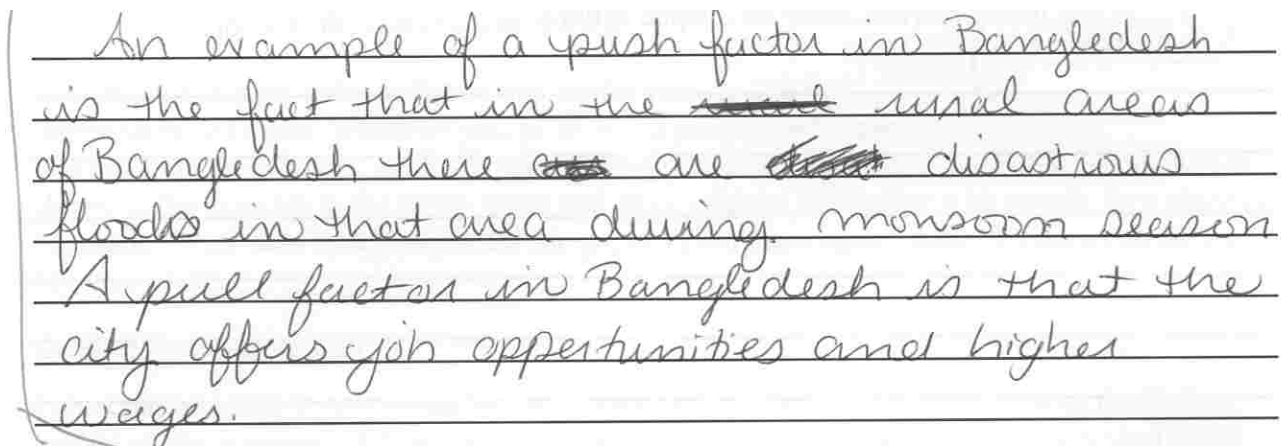 An example of a push factor in Bangledesh
is the fact that in the rural areas
of Bangledesh there are disastrous
floods in that area during monsoon season
A pull factor in Bangledesh is that the
city offers job oppertunities and higher
wages.